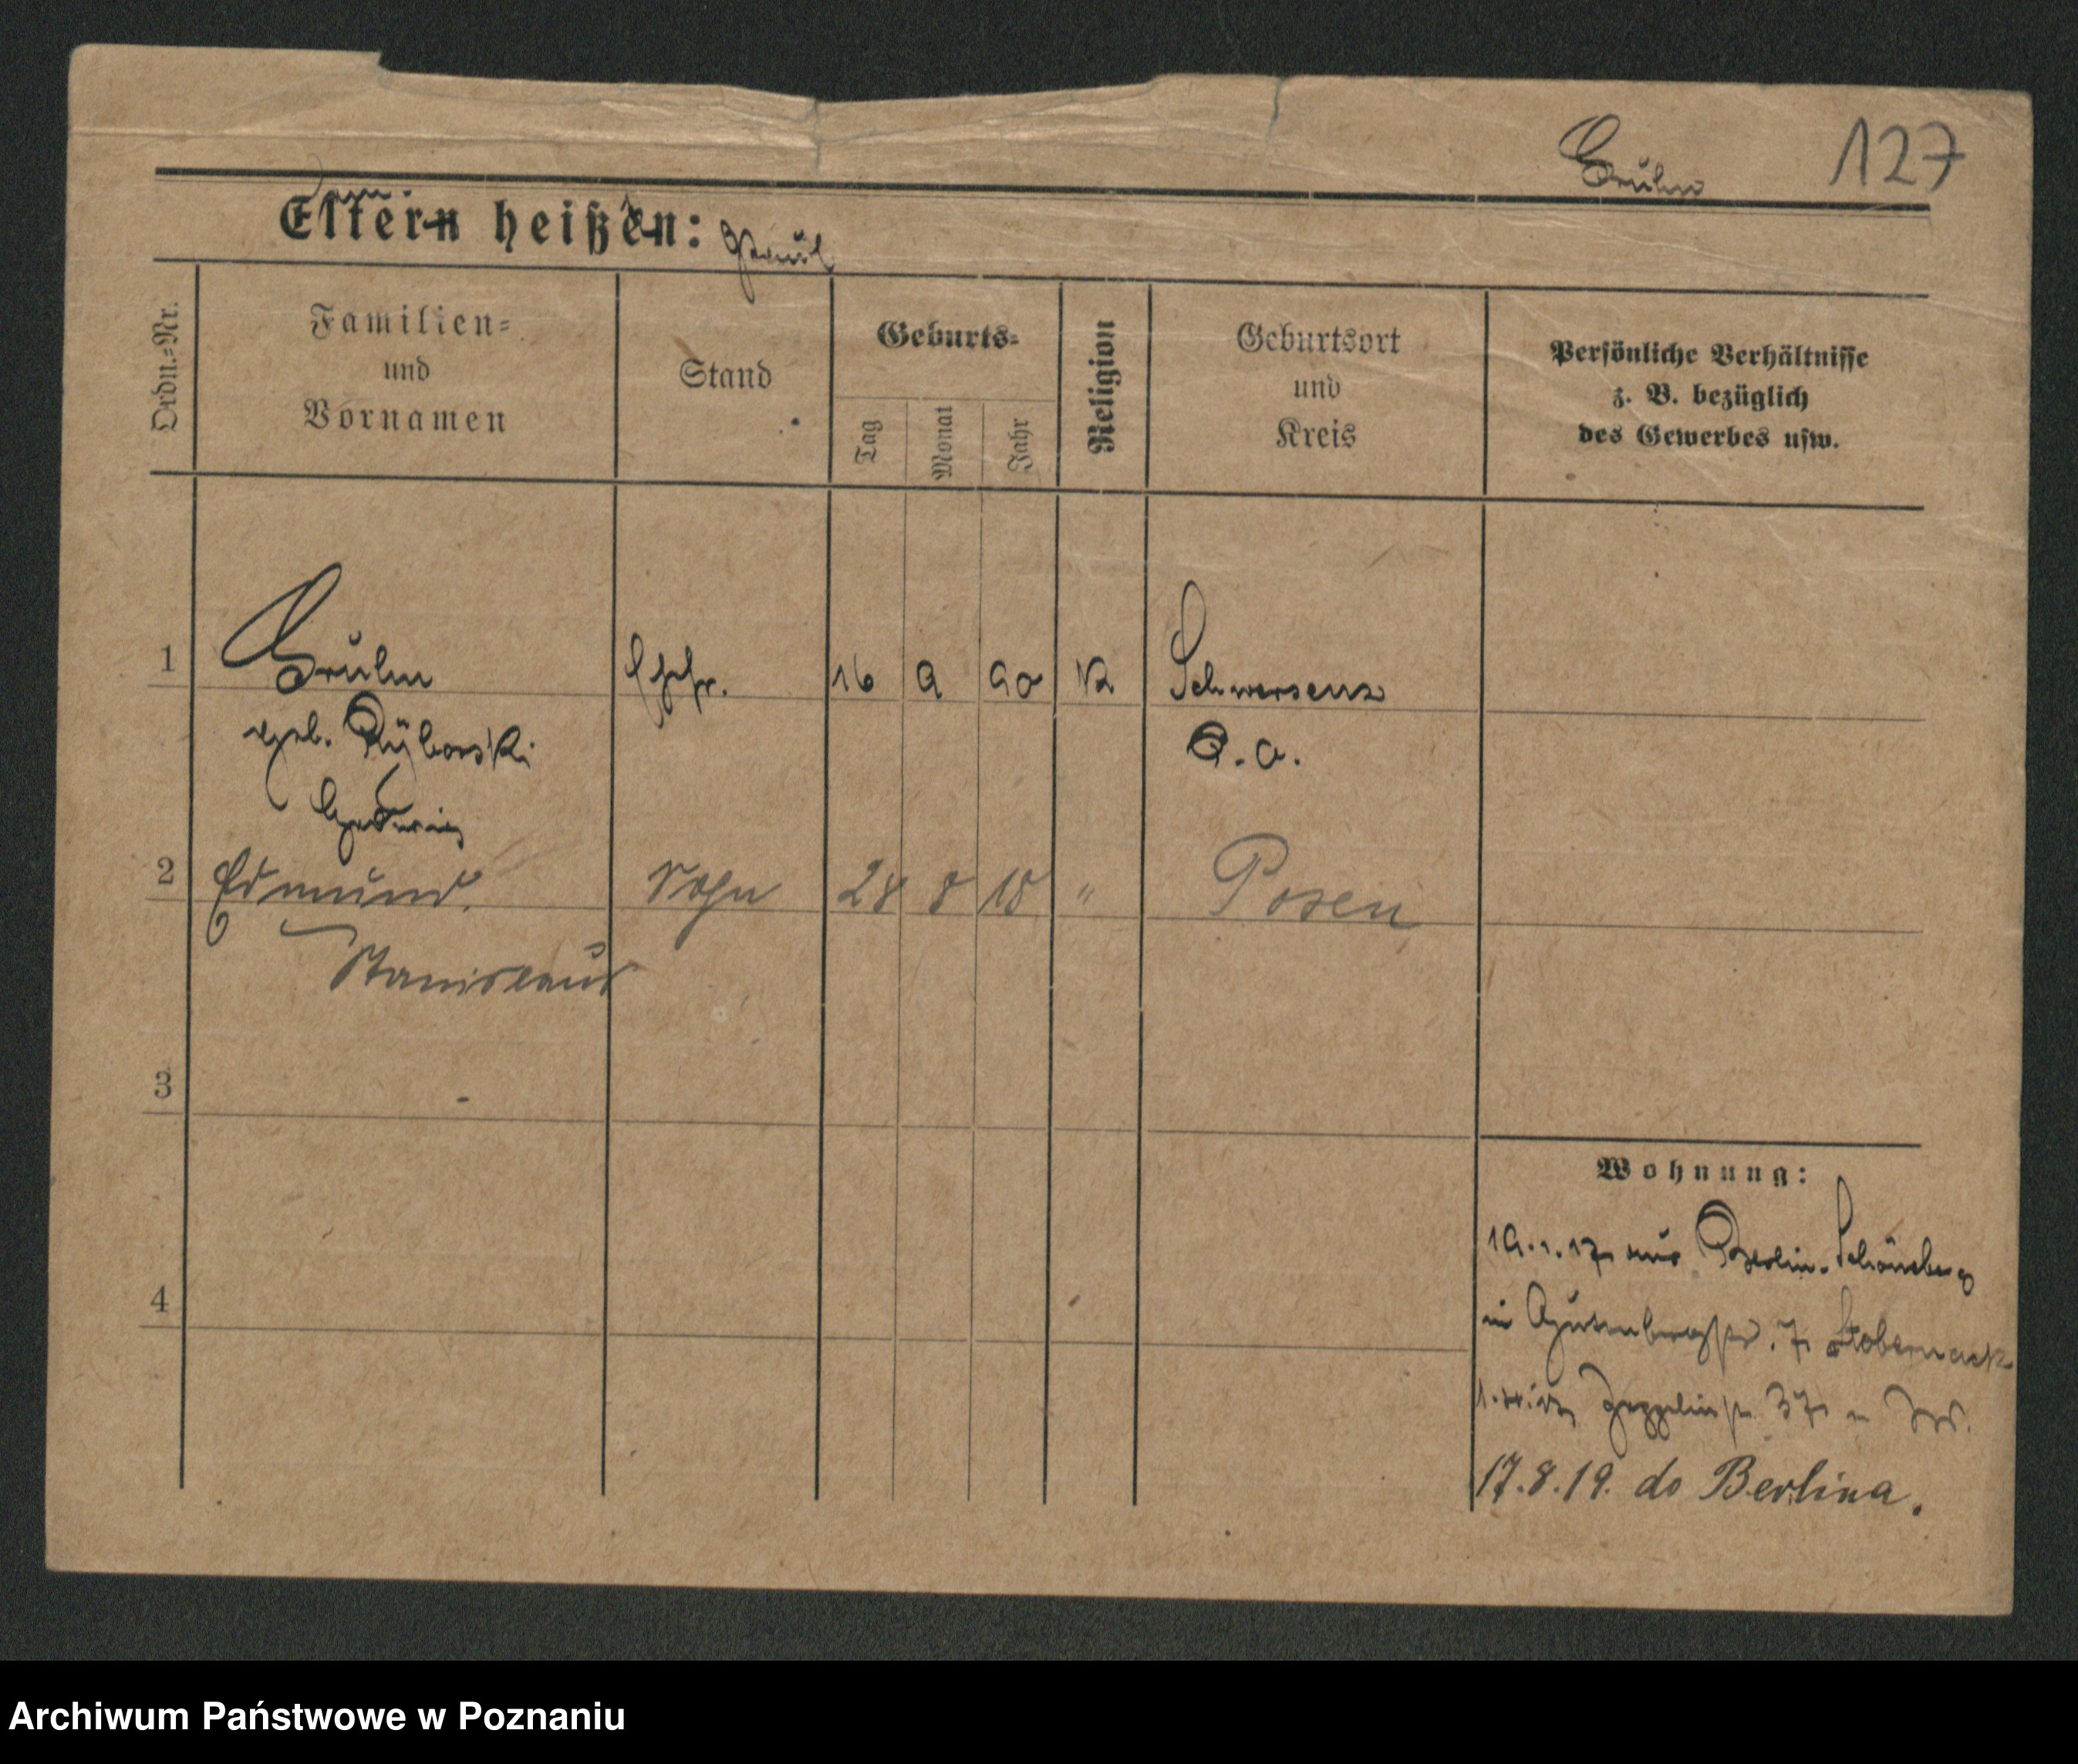 127
Eltern heißen: Paul
Ordn.=Nr.
Familien=
und
Vornamen
Stand
Geburts=
Tag
Monat
Jahr
Religion
Geburtsort
und
Kreis
Persönliche Verhältnisse
z. B. bezüglich
des Gewerbes usw.
1
Ehfr.
16 9 90 K Schwersenz
geb. Ryborski
P. O.
Hedwig
2 Edmund Sohn 28 8 18 " Posen
Stanislaus
3
Wohnung:
19.1.17 aus Berlin-Schöneberg
4
in Gutenbergstr. 7 Stobernack
Zeppelinstr. 37
17.8.19. do Berlina.
Archiwum Państwowe w Poznaniu